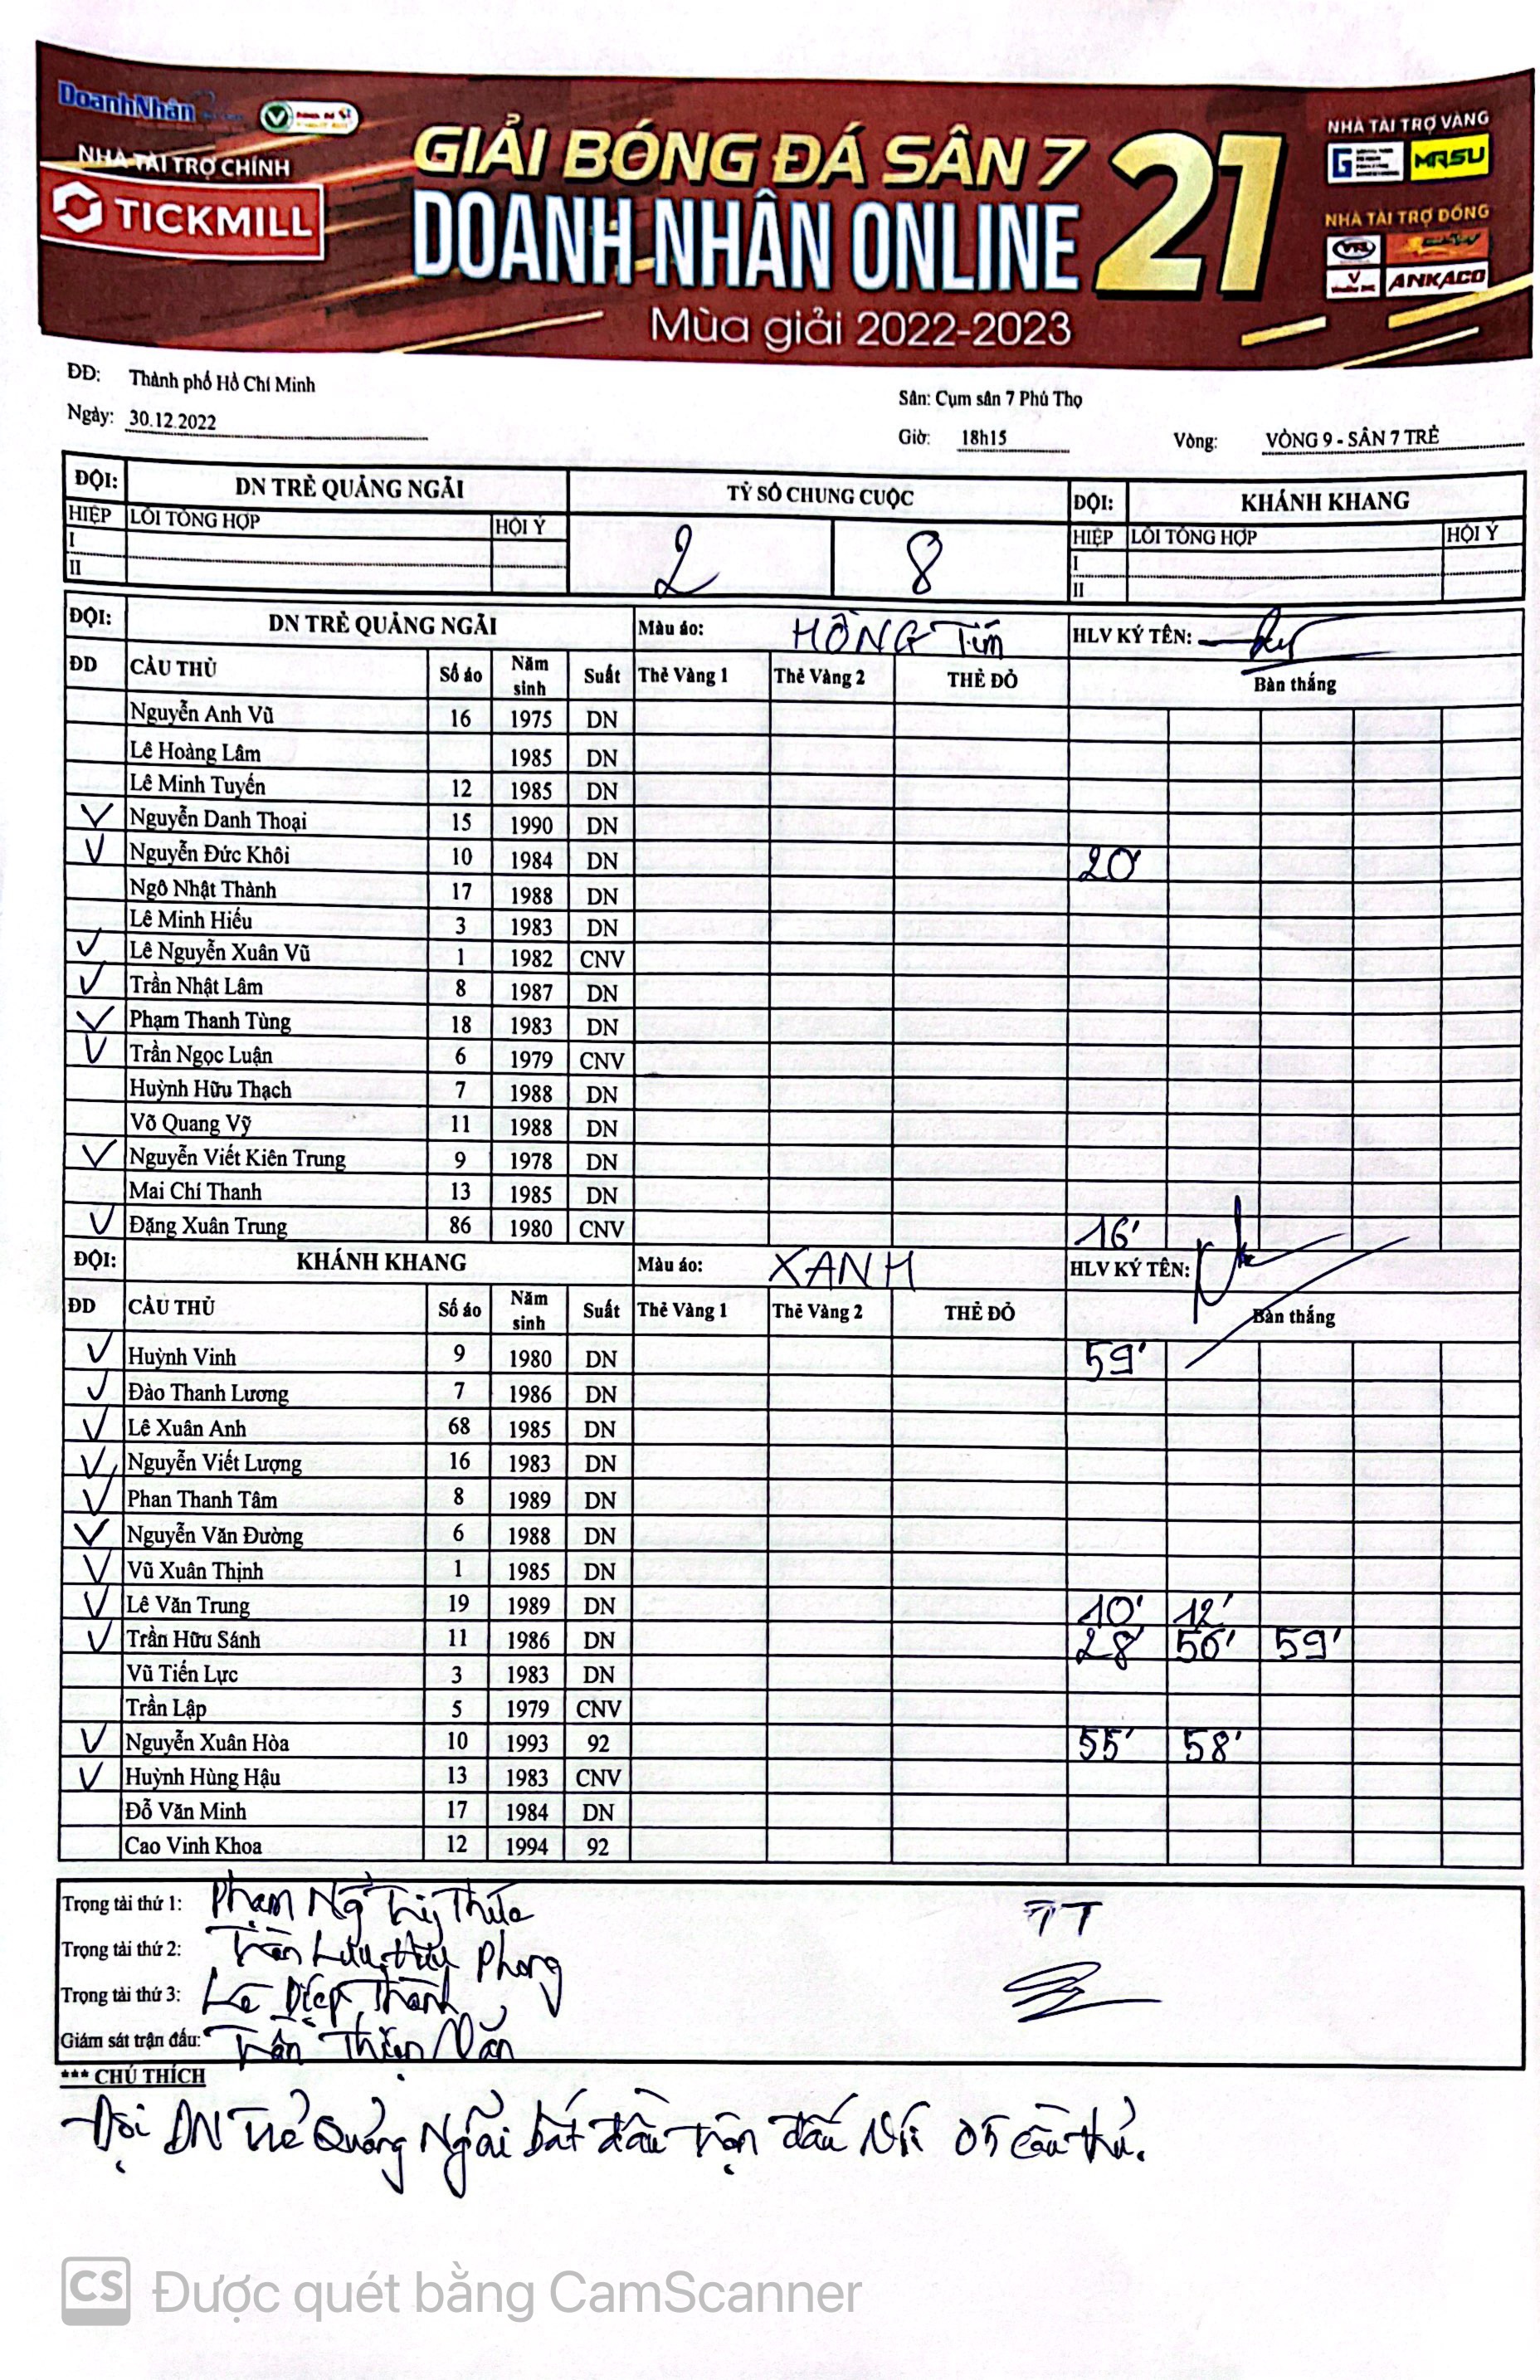 DoanhNhân
NHÀ TÀI TRỢ CHÍNH
TICKMILL
GIẢI BÓNG ĐÁ SÂN 7
DOANH NHÂN ONLINE
21
Mùa giải 2022-2023
NHÀ TÀI TRỢ VÀNG
G MRSU
NHÀ TÀI TRỢ ĐỒNG
VRL
ANKACO
ĐĐ: Thành phố Hồ Chí Minh
Sân: Cụm sân 7 Phú Thọ
Ngày: 30.12.2022
Giờ: 18h15 Vòng: VÒNG 9 - SÂN 7 TRẺ
ĐỘI: DN TRẺ QUẢNG NGÃI TỶ SỐ CHUNG CUỘC ĐỘI: KHÁNH KHANG
HIỆP LỖI TỔNG HỢP HỘI Ý 2 8 HIỆP LỖI TỔNG HỢP HỘI Ý
I I
II II
ĐỘI: DN TRẺ QUẢNG NGÃI Màu áo: HỒNG Tím HLV KÝ TÊN:
ĐD CẦU THỦ Số áo Năm sinh Suất Thẻ Vàng 1 Thẻ Vàng 2 THẺ ĐỎ Bàn thắng
Nguyễn Anh Vũ 16 1975 DN
Lê Hoàng Lâm 1985 DN
Lê Minh Tuyến 12 1985 DN
V Nguyễn Danh Thoại 15 1990 DN
V Nguyễn Đức Khôi 10 1984 DN 20'
Ngô Nhật Thành 17 1988 DN
Lê Minh Hiếu 3 1983 DN
V Lê Nguyễn Xuân Vũ 1 1982 CNV
V Trần Nhật Lâm 8 1987 DN
V Phạm Thanh Tùng 18 1983 DN
V Trần Ngọc Luận 6 1979 CNV
Huỳnh Hữu Thạch 7 1988 DN
Võ Quang Vỹ 11 1988 DN
V Nguyễn Viết Kiên Trung 9 1978 DN
Mai Chí Thanh 13 1985 DN
V Đặng Xuân Trung 86 1980 CNV 16'
ĐỘI: KHÁNH KHANG Màu áo: XANH HLV KÝ TÊN:
ĐD CẦU THỦ Số áo Năm sinh Suất Thẻ Vàng 1 Thẻ Vàng 2 THẺ ĐỎ Bàn thắng
V Huỳnh Vinh 9 1980 DN 59'
V Đào Thanh Lương 7 1986 DN
V Lê Xuân Anh 68 1985 DN
V Nguyễn Viết Lượng 16 1983 DN
V Phan Thanh Tâm 8 1989 DN
V Nguyễn Văn Đường 6 1988 DN
V Vũ Xuân Thịnh 1 1985 DN
V Lê Văn Trung 19 1989 DN 10' 12'
V Trần Hữu Sánh 11 1986 DN 28' 56' 59'
Vũ Tiến Lực 3 1983 DN
Trần Lập 5 1979 CNV
V Nguyễn Xuân Hòa 10 1993 92 55' 58'
V Huỳnh Hùng Hậu 13 1983 CNV
Đỗ Văn Minh 17 1984 DN
Cao Vinh Khoa 12 1994 92
Trọng tài thứ 1: Phạm Ng Trí Thức TT
Trọng tài thứ 2: Trần Lưu Hữu Phong
Trọng tài thứ 3: Lê Diệp Thành
Giám sát trận đấu: Trần Thiện Văn
*** CHÚ THÍCH
Đội DN Trẻ Quảng Ngãi bắt đầu trận đấu với 05 cầu thủ.
CS Được quét bằng CamScanner